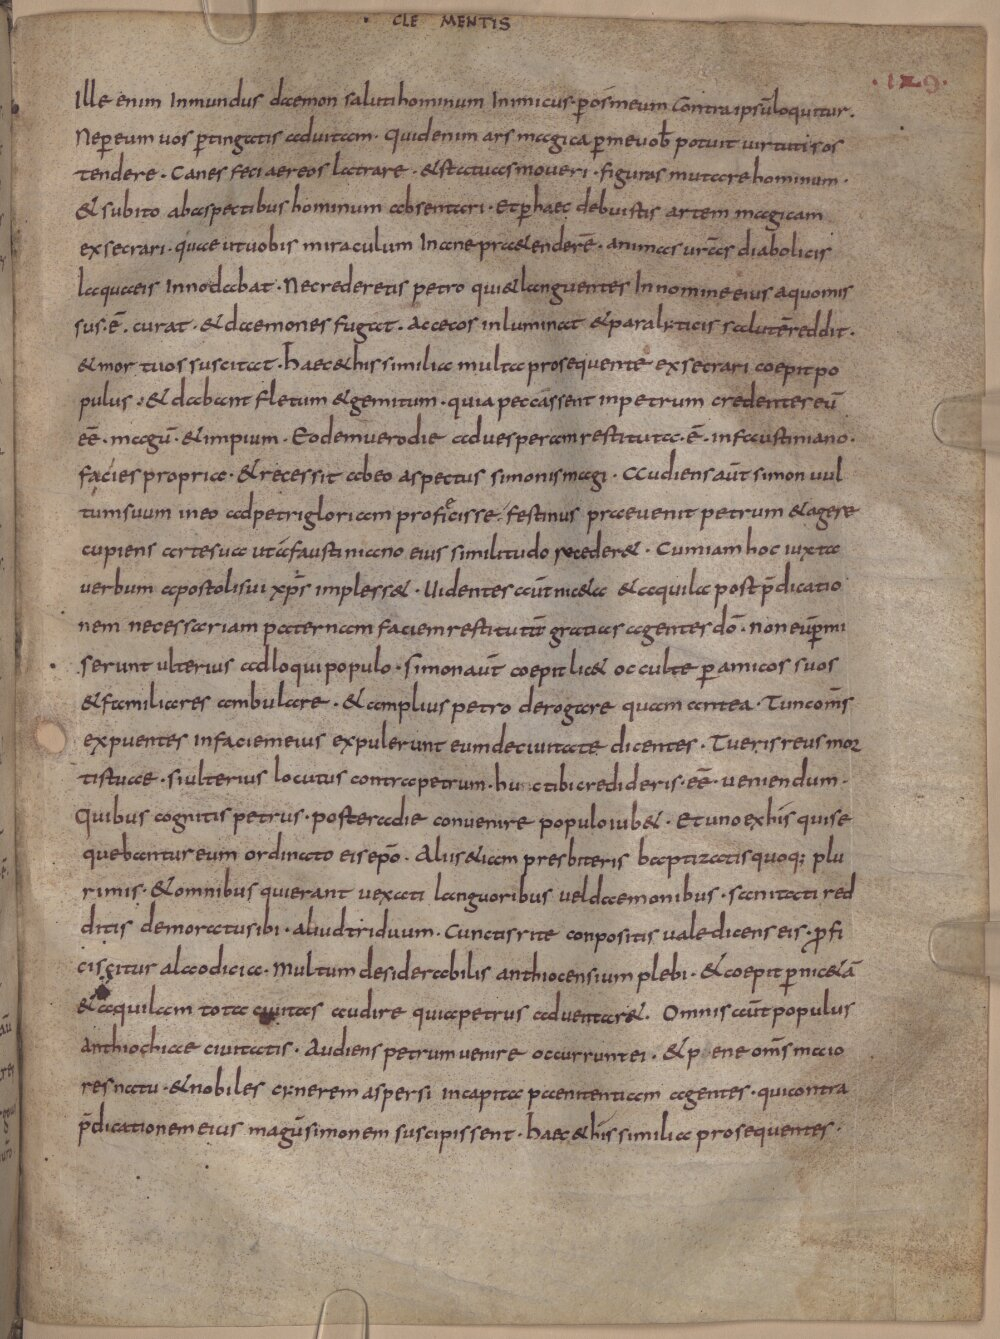 CLE MENTIS
·129·
Ille enim Inmundus daemon salutihominum Inimicus· p̲ os meum Contra ipsū loquitur.
Nep̲ eum uos p̲tingatis aduitam· Quidenim ars magica p̲meuob̅ potuit uirtutis os
tendere. Canes feci aereos latrare· &statuas moueri· figuras mutare hominum.
& subito abaspectibus hominum absentari· Etp̲ haec debuistis artem magicam
exsecrari· quae utuobis miraculum Inane praetenderē. animas urās diabolicis
laqueis Innodabat· Necrederetis petro qui&languentes Innomineeius aquomis
sus·ē. curat· &daemones fugat. Accecos inluminat &paraliticis salutēreddit·
&mor tuos suscitat· haec&his similia multa prosequente exsecrari coepitpo
pulus· &dabant fletum &gemitum· quia peccassent inpetrum credentes eū
eē· magū· &impium· Eodemuerodie aduesperam restituta·ē· infaustiniano·
facies propria· &recessit abeo aspectus simonismagi· Audiens aūt simon uul
tumsuum ineo adpetrigloriam proficisse· festinus praeuenit petrum &agere
cupiens artesua utafaustiniano eius similitudo receder&· Cumiam hoc iuxta
uerbum apostolisui xp̄s impless&· Uidentes aūt nic&a &aquila post p̄dicatio
nem necessariam paternam faciem restitutā gratias agentes dō· non eūp̲mi
serunt ulterius adloqui populo· simon aūt coepit lic& occulte p̲ amicos suos
&familiares ambulare· &amplius petro derogare quam antea· Tuncom̄s
expuentes infaciemeius expulerunt eumdeciuitate dicentes· Tuerisreusmor
tistuae· siulterius locutus contrapetrum· huc tibicredideris·eē· ueniendum·
Quibus cognitis petrus· posteradie conuenire populoiub&· Etunoexhis quise
quebantureum ordinato eisep̄o· Aliis&iam presbiteris baptizatisquoq; plu
rimis· &omnibus quierant uexati languoribus ueldaemonibus· sanitati red
ditis demoratusibi· aliudtriduum· Cunctisrite conpositis uale dicens eis· p̲fi
ciscitur alaodicia· Multum desiderabilis anthiocensium plebi· &coepit p̲ nic&ā
&aquilam tota ciuitas audire quiapetrus aduentar&· Omnis aūt populus
anthiochiae ciuitatis· Audiens petrum uenire occurrunt ei· &p ene om̄s maio
res natu· &nobiles cinerem aspersi incapita paenitentiam agentes· quicontra
p̄dicationem eius magū simonem suscipissent· haec&his similia prosequentes·